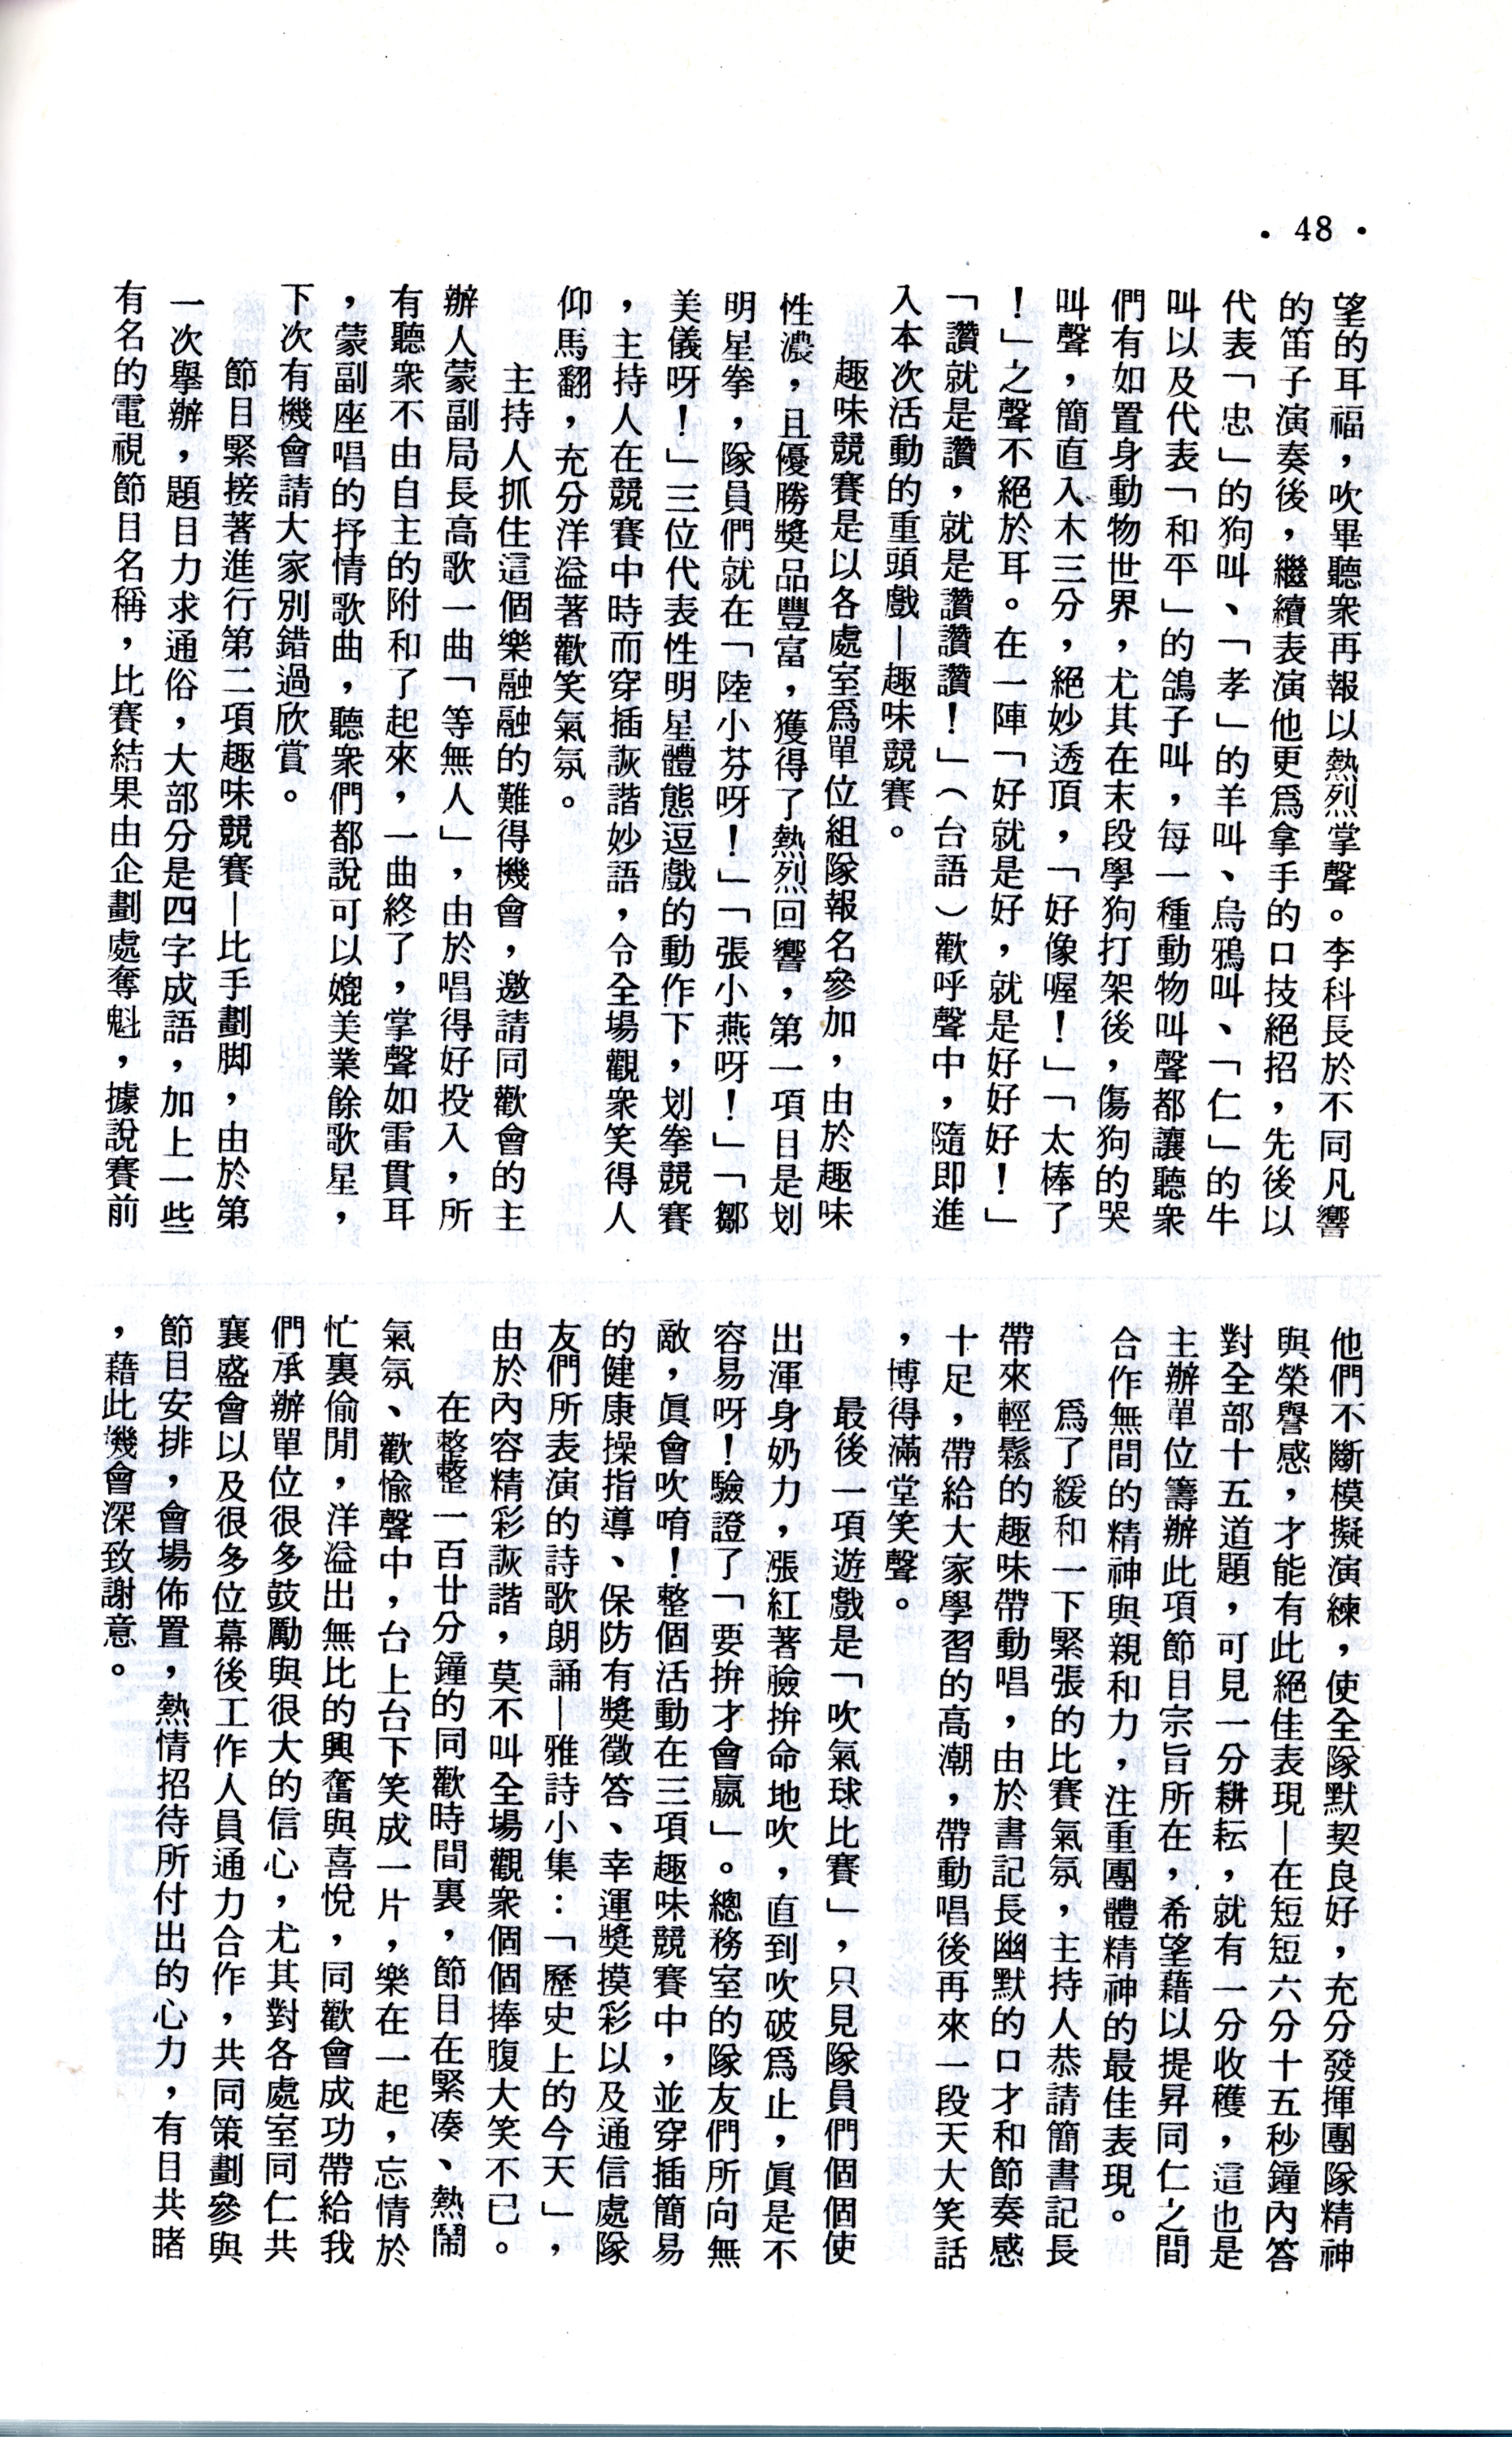 · 48 ·
望的耳福，吹畢聽衆再報以熱烈掌聲。李科長於不同凡響
的笛子演奏後，繼續表演他更爲拿手的口技絕招，先後以
代表「忠」的狗叫、「孝」的羊叫、烏鴉叫、「仁」的牛
叫以及代表「和平」的鴿子叫，每一種動物叫聲都讓聽衆
們有如置身動物世界，尤其在末段學狗打架後，傷狗的哭
叫聲，簡直入木三分，絕妙透頂，「好像喔！」「太棒了
！」之聲不絕於耳。在一陣「好就是好，就是好好好！」
「讚就是讚，就是讚讚讚！」（台語）歡呼聲中，隨即進
入本次活動的重頭戲—趣味競賽。
趣味競賽是以各處室爲單位組隊報名參加，由於趣味
性濃，且優勝獎品豐富，獲得了熱烈回響，第一項目是划
明星拳，隊員們就在「陸小芬呀！」「張小燕呀！」「鄒
美儀呀！」三位代表性明星體態逗戲的動作下，划拳競賽
，主持人在競賽中時而穿插詼諧妙語，令全場觀衆笑得人
仰馬翻，充分洋溢著歡笑氣氛。
主持人抓住這個樂融融的難得機會，邀請同歡會的主
辦人蒙副局長高歌一曲「等無人」，由於唱得好投入，所
有聽衆不由自主的附和了起來，一曲終了，掌聲如雷貫耳
，蒙副座唱的抒情歌曲，聽衆們都說可以媲美業餘歌星，
下次有機會請大家別錯過欣賞。
節目緊接著進行第二項趣味競賽—比手劃脚，由於第
一次擧辦，題目力求通俗，大部分是四字成語，加上一些
有名的電視節目名稱，比賽結果由企劃處奪魁，據說賽前
他們不斷模擬演練，使全隊默契良好，充分發揮團隊精神
與榮譽感，才能有此絕佳表現—在短短六分十五秒鐘內答
對全部十五道題，可見一分耕耘，就有一分收穫，這也是
主辦單位籌辦此項節目宗旨所在，希望藉以提昇同仁之間
合作無間的精神與親和力，注重團體精神的最佳表現。
爲了緩和一下緊張的比賽氣氛，主持人恭請簡書記長
帶來輕鬆的趣味帶動唱，由於書記長幽默的口才和節奏感
十足，帶給大家學習的高潮，帶動唱後再來一段天大笑話
，博得滿堂笑聲。
最後一項遊戲是「吹氣球比賽」，只見隊員們個個使
出渾身奶力，漲紅著臉拚命地吹，直到吹破爲止，眞是不
容易呀！驗證了「要拚才會嬴」。總務室的隊友們所向無
敵，眞會吹唷！整個活動在三項趣味競賽中，並穿插簡易
的健康操指導、保防有獎徵答、幸運獎摸彩以及通信處隊
友們所表演的詩歌朗誦—雅詩小集：「歷史上的今天」，
由於內容精彩詼諧，莫不叫全場觀衆個個捧腹大笑不已。
在整整一百廿分鐘的同歡時間裏，節目在緊凑、熱鬧
氣氛、歡愉聲中，台上台下笑成一片，樂在一起，忘情於
忙裏偷閒，洋溢出無比的興奮與喜悅，同歡會成功帶給我
們承辦單位很多鼓勵與很大的信心，尤其對各處室同仁共
襄盛會以及很多位幕後工作人員通力合作，共同策劃參與
節目安排，會場佈置，熱情招待所付出的心力，有目共睹
，藉此機會深致謝意。